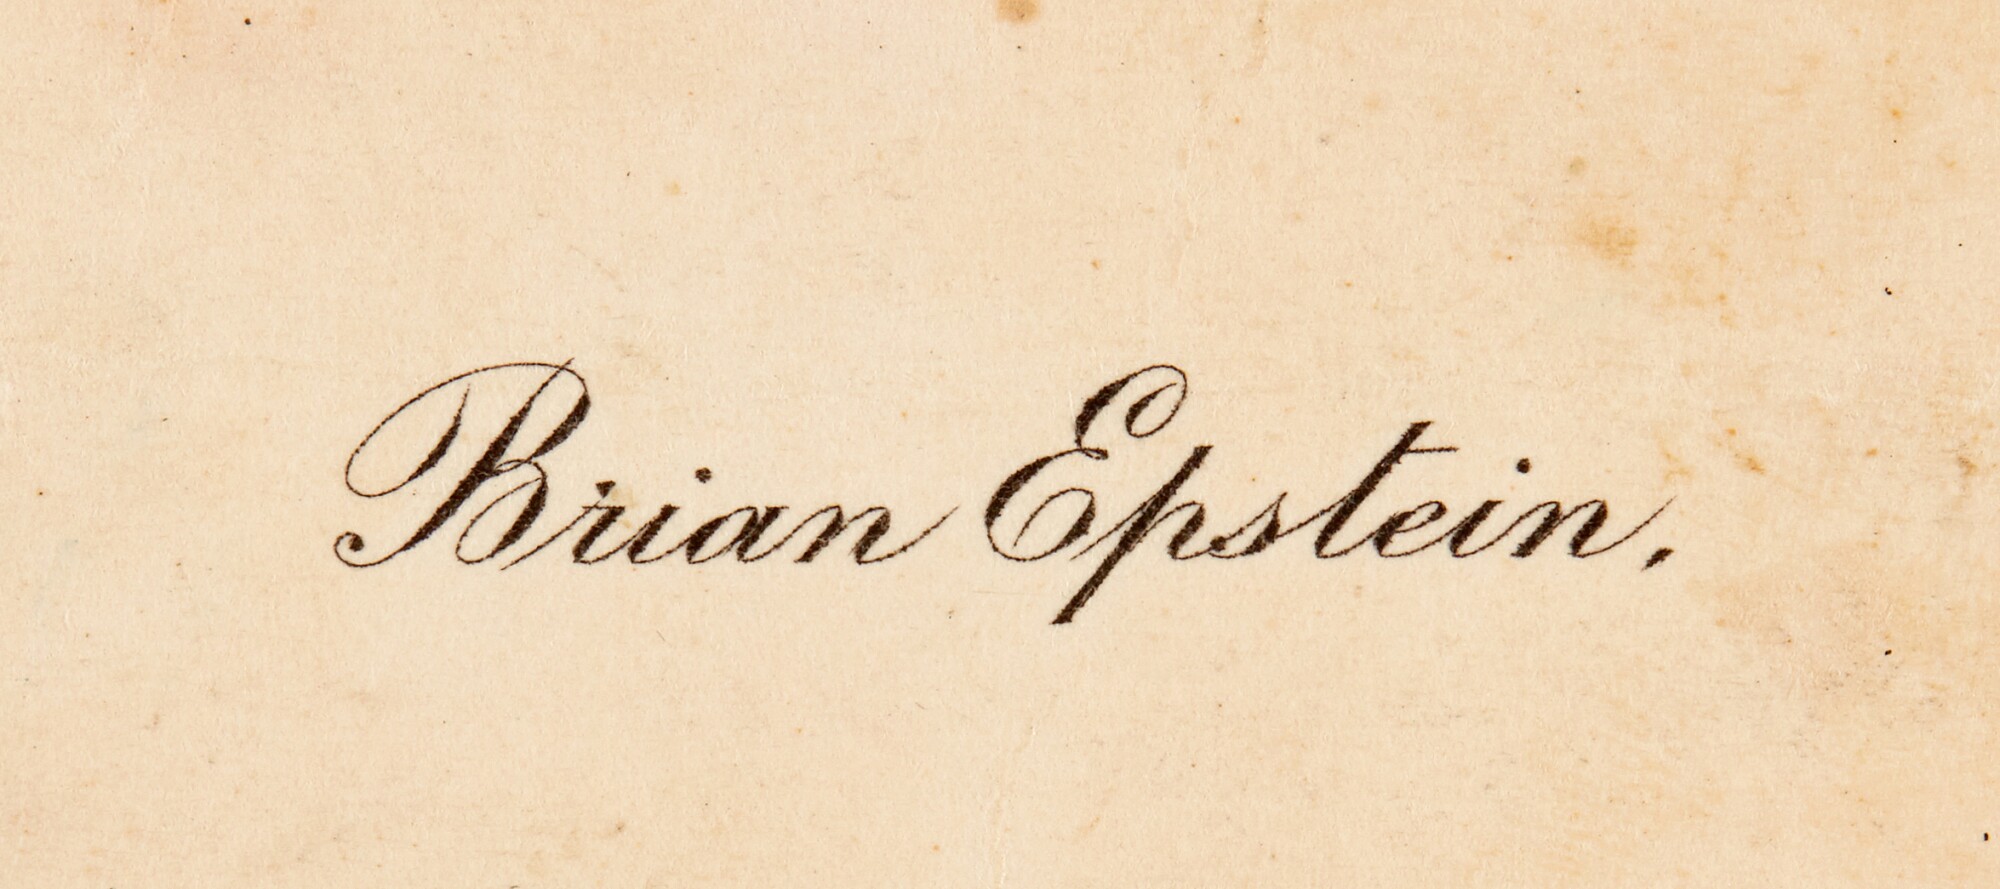 Brian Epstein.